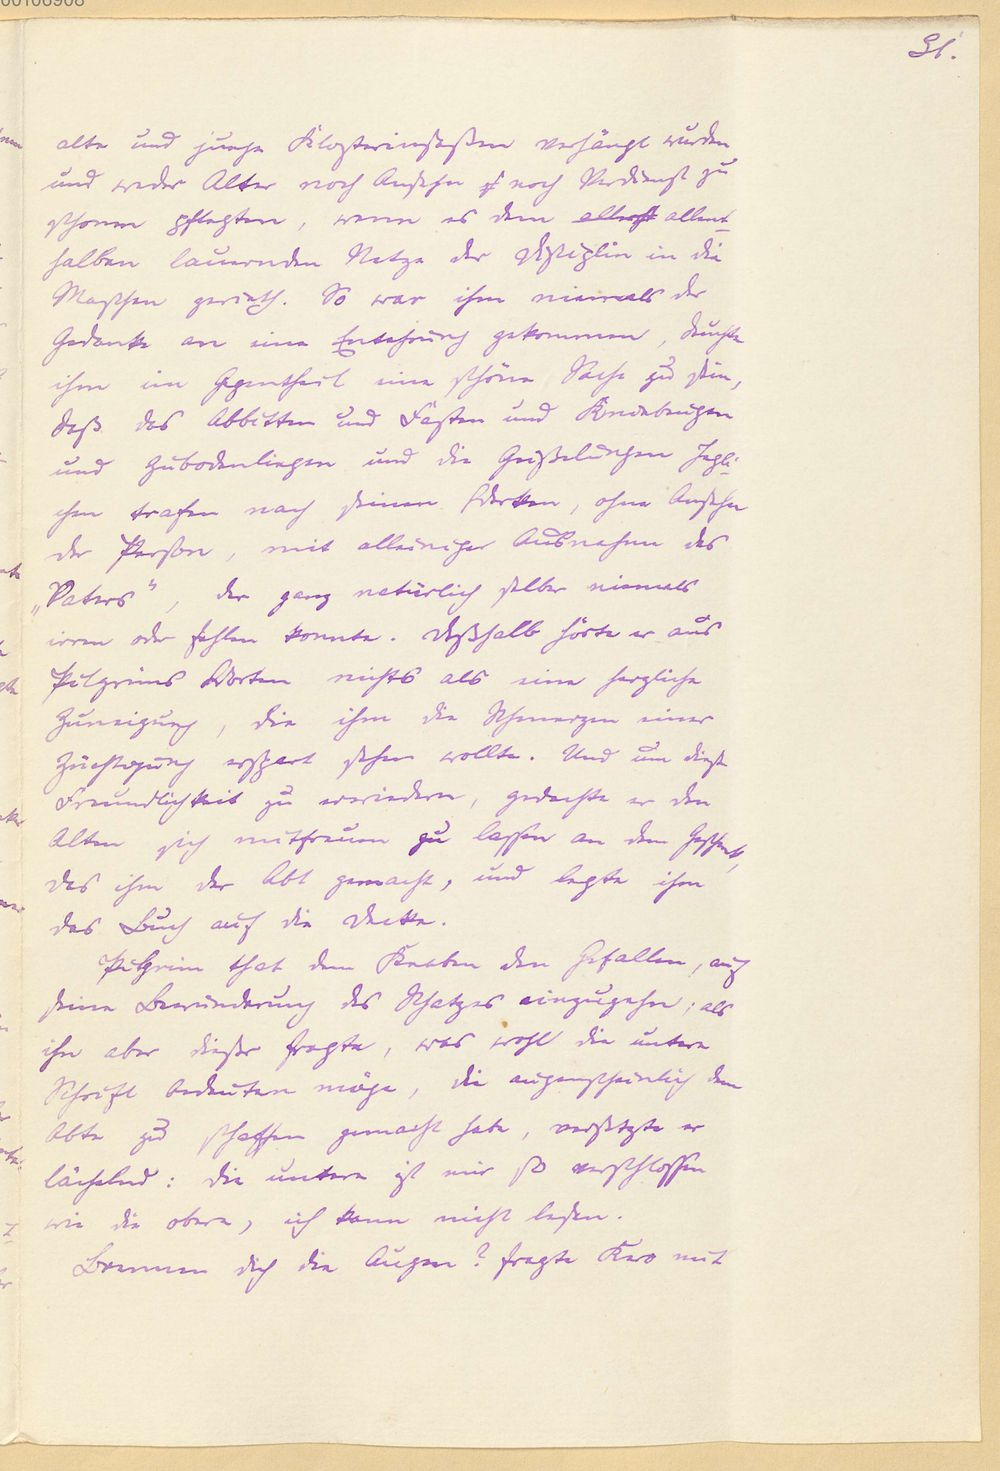 00106908
31.
alte und junge Klosterinsaßen verhängt wurden
und weder Alter noch Ansehn noch Verdienst zu
schonen pflegten, wenn es dem allent-
halben lauernden Netze der Disciplin in die
Maschen gerieth. So war ihm niemals der
Gedanke an eine Entehrung gekommen, deuchte
ihm im Gegentheil eine schöne Sache zu sein,
daß das Abbitten und Fasten und Kniebeugen
und Zubodenliegen und die Geißelungen Jegli-
chen trafen nach seinen Werken, ohne Ansehn
der Person, mit alleiniger Ausnahme des
„Vaters“, der ganz natürlich selber niemals
irren oder fehlen konnte. Deßhalb hörte er aus
Pilgrims Worten nichts als eine herzliche
Zuneigung, die ihm die Schmerzen einer
Züchtigung erspart sehen wollte. Und um diese
Freundlichkeit zu erwiedern, gedachte er den
Alten sich mitfreuen zu lassen an dem Geschenk,
das ihm der Abt gemacht, und legte ihm
das Buch auf die Decke.
Pilgrim that dem Knaben den Gefallen, auf
seine Bewunderung des Schatzes einzugehn; als
ihn aber dieser fragte, was wohl die untere
Schrift bedeuten möge, die augenscheinlich dem
Abte zu schaffen gemacht habe, versetzte er
lächelnd: die untere ist mir so verschlossen
wie die obere, ich kann nicht lesen.
Brennen dich die Augen? fragte Kero mit